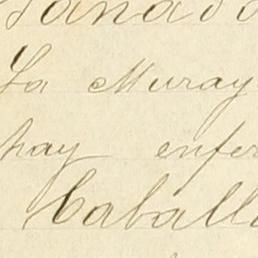 Ganado
Ya Muray
hay enfer
Caball